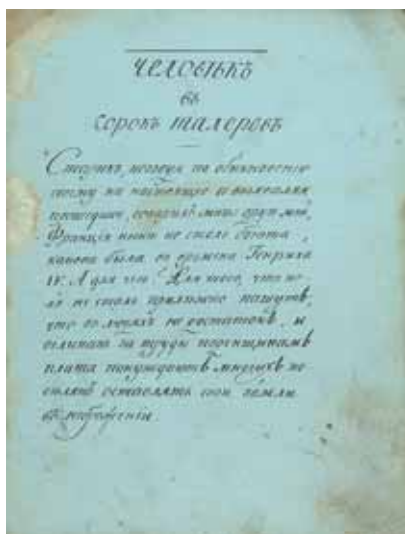 Человѣкъ
въ
сорокъ талеровъ
Старикъ, по обыкновенію
своему на настоящее и выхваляя
другъ мой,
Франція нынѣ не столь богата,
какова была во времена Генриха
IV. А для чего? Для того, что по-
ля не столь прилѣжно пашутъ,
что въ людяхъ недостатокъ, и
за труды поденщикамъ
плата понуждаетъ многихъ по-
селянъ оставлять свои земли
въ небреженіи.